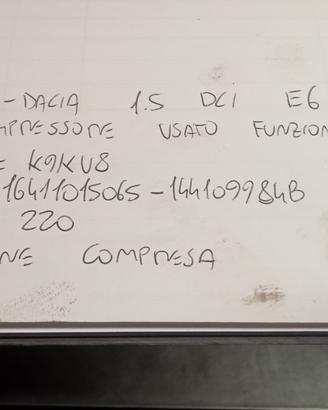 -DACIA 1.5 DCi E6
MPRESSORE USATO FUNZION
E K9KU8
16411015065-144109984B
220
NE COMPRESA